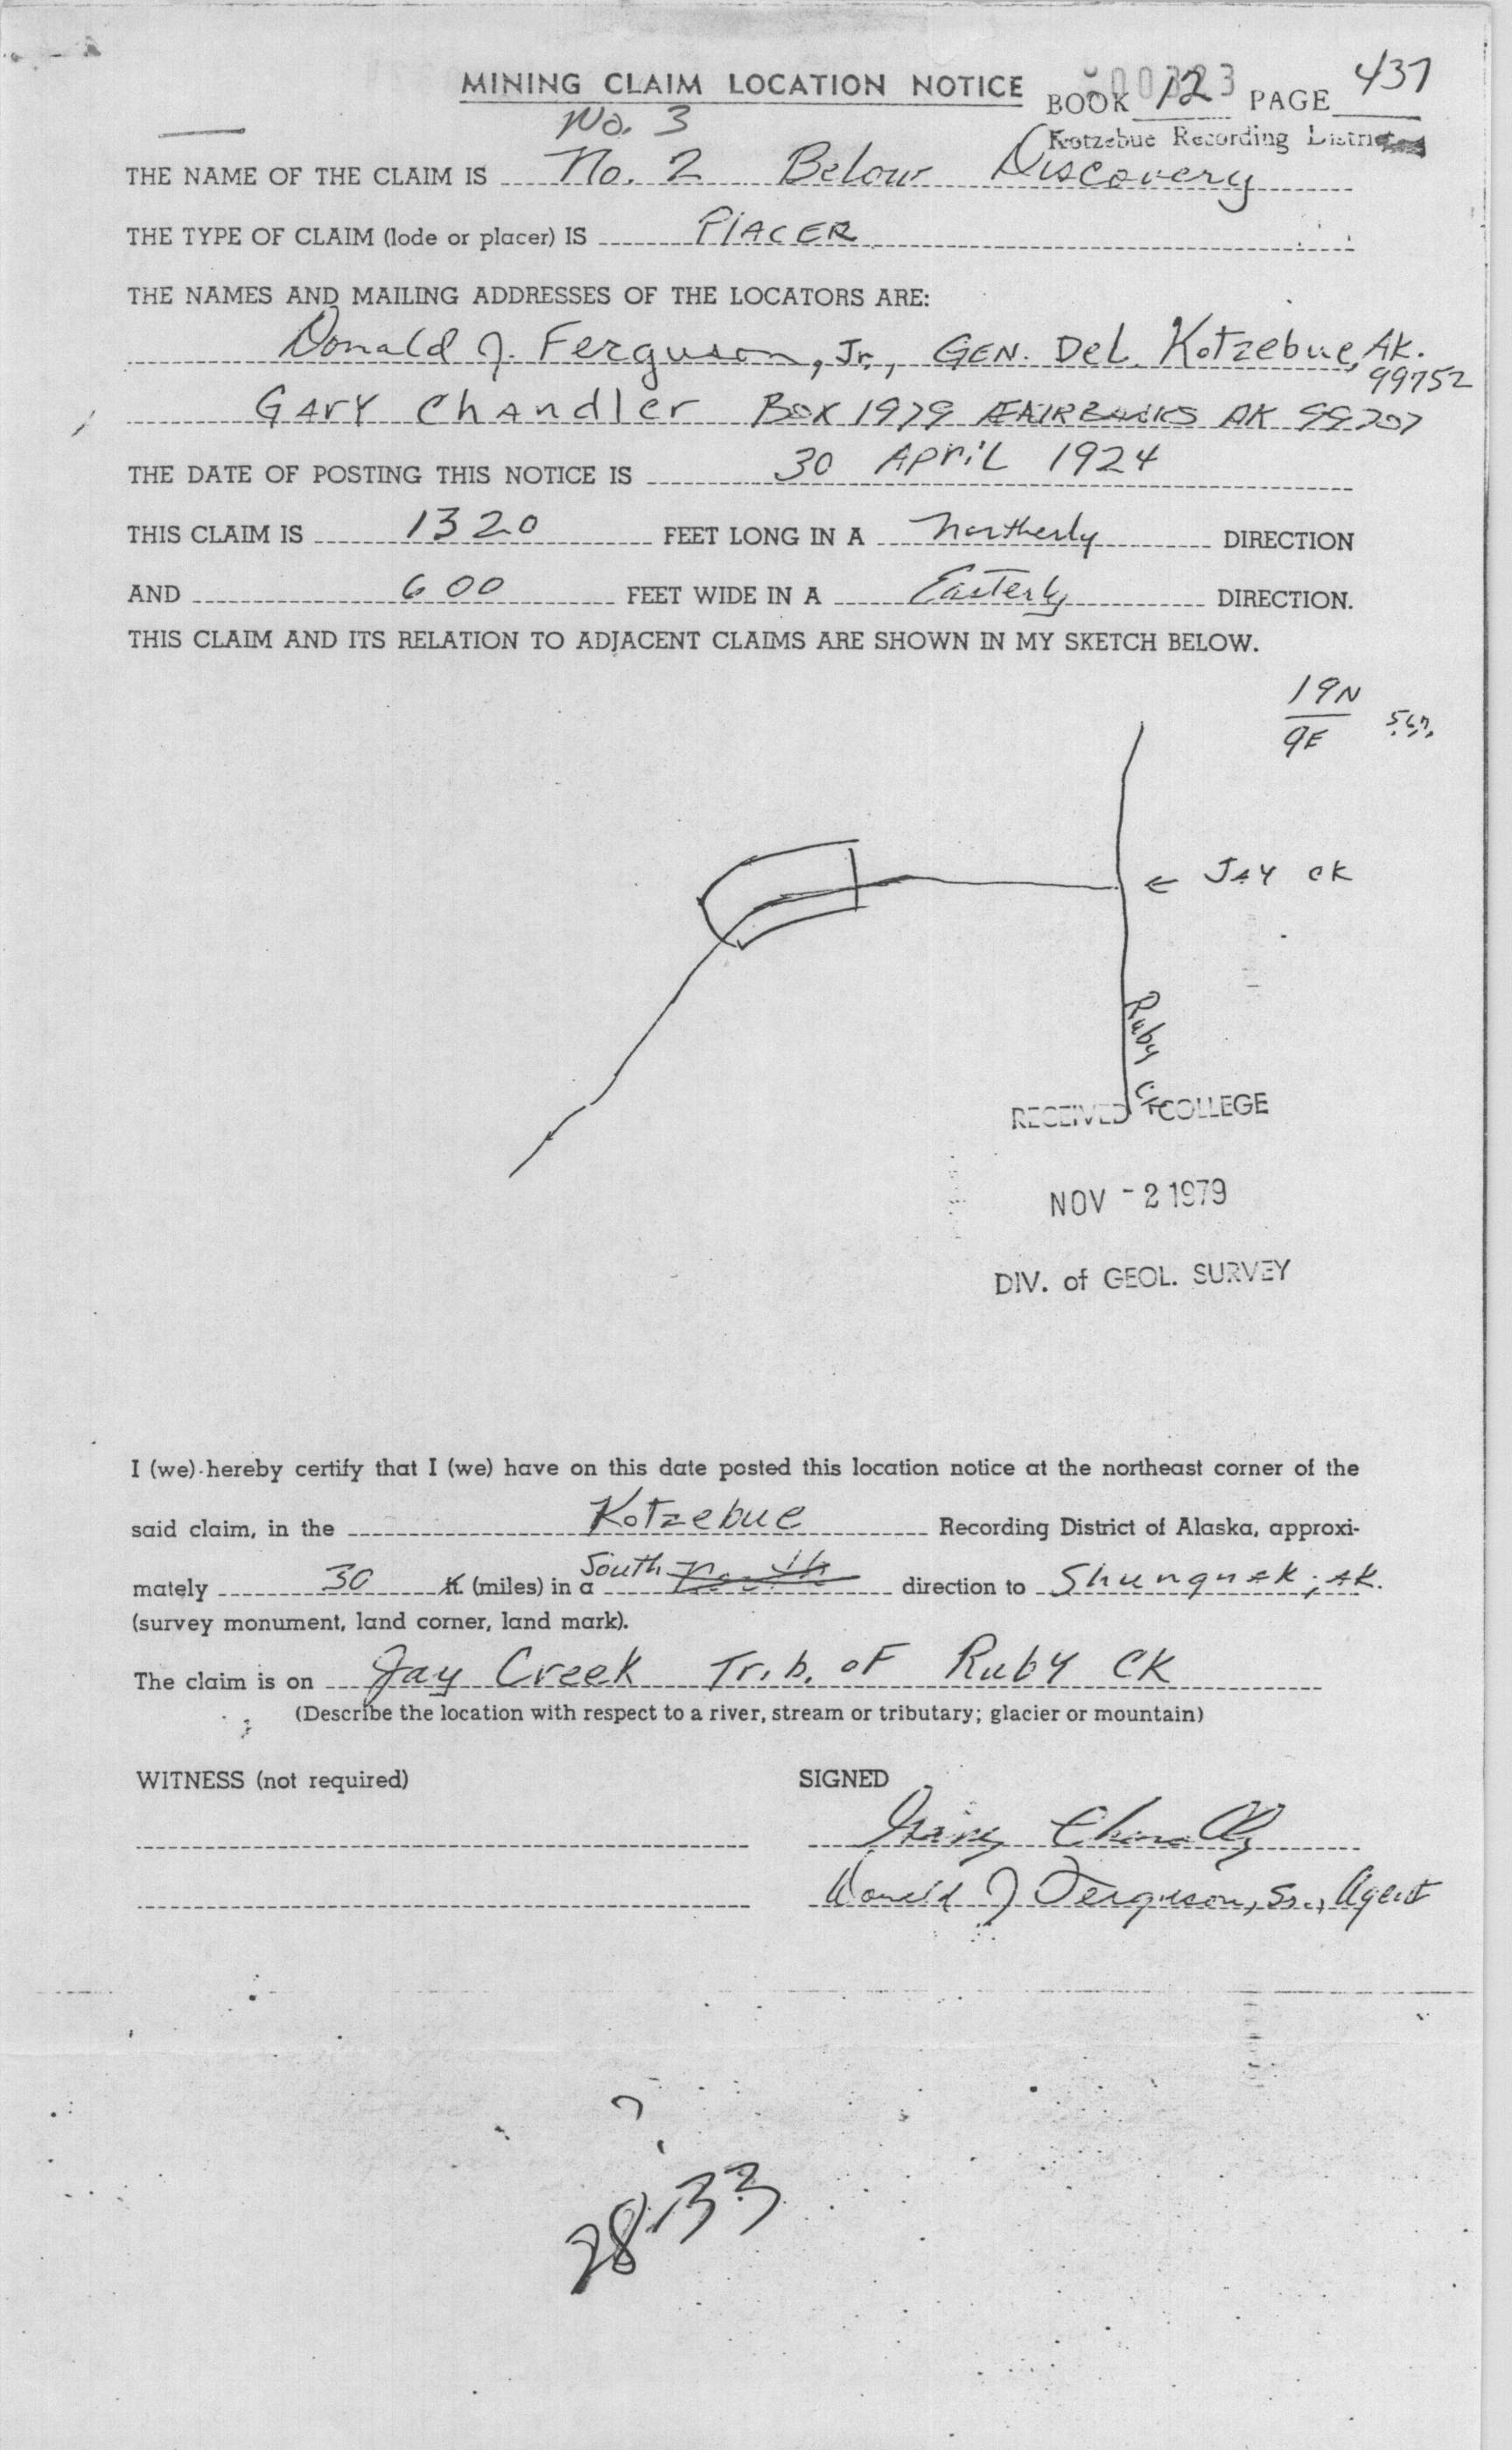 MINING CLAIM LOCATION NOTICE
BOOK 12 PAGE 437
Kotzebue Recording District
No. 3
THE NAME OF THE CLAIM IS No. 2 Below Discovery
THE TYPE OF CLAIM (lode or placer) IS PlACER
THE NAMES AND MAILING ADDRESSES OF THE LOCATORS ARE:
Donald J. Ferguson, Jr., GEN. Del. Kotzebue, AK.
99752
GARY ChANdler BOX 1979 FAIRBANKS AK 99707
THE DATE OF POSTING THIS NOTICE IS 30 APriL 1924
THIS CLAIM IS 1320 FEET LONG IN A Northerly DIRECTION
AND 600 FEET WIDE IN A Easterly DIRECTION.
THIS CLAIM AND ITS RELATION TO ADJACENT CLAIMS ARE SHOWN IN MY SKETCH BELOW.
19N
9E
← JAY CK
Ruby CK
RECEIVED COLLEGE
NOV - 2 1979
DIV. of GEOL. SURVEY
I (we) hereby certify that I (we) have on this date posted this location notice at the northeast corner of the
said claim, in the Kotzebue Recording District of Alaska, approxi-
mately 30 ft. (miles) in a South north direction to Shungnak, AK.
(survey monument, land corner, land mark).
The claim is on Jay Creek Trib. oF Ruby CK
(Describe the location with respect to a river, stream or tributary; glacier or mountain)
WITNESS (not required) SIGNED
Gary Chandler
Donald J Ferguson, Sr., Agent
28-33